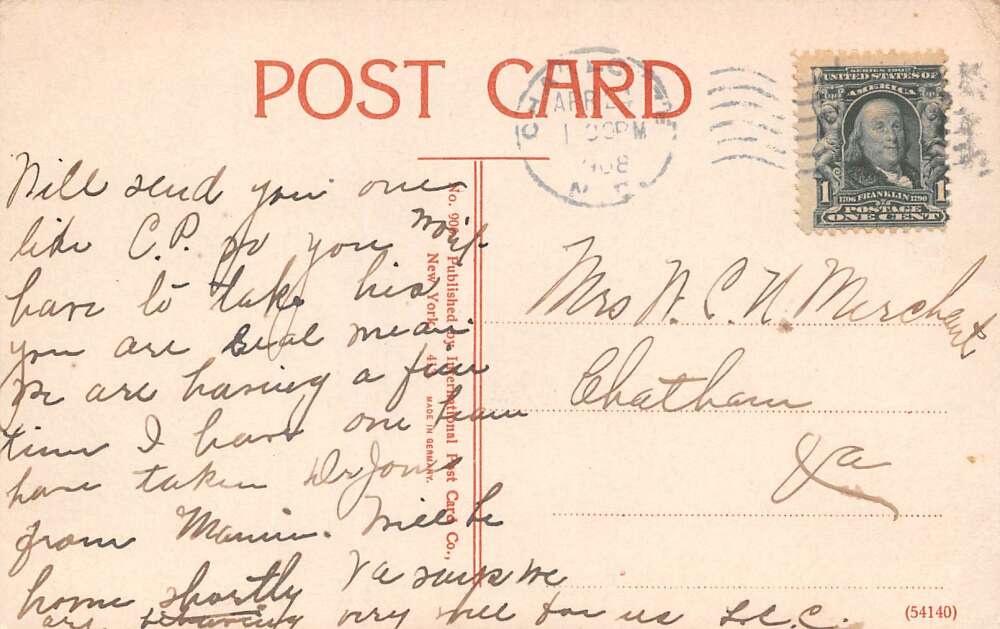 POST CARD
CHARLOTTE
APR 2
1 30PM
1908
N.C.
SERIES 1902
UNITED STATES OF
AMERICA
1 1706 FRANKLIN 1790 1
POSTAGE
ONE CENT
Will send you one
like C.P. so you won't
have to take his
you are real mean.
We are having a fine
time I have one team
have taken Dr Jones
from Marion. Will be
home shortly Va says we
are very well for us L.C.C.
No. 900 Published by International Post Card Co.,
New York
MADE IN GERMANY.
Mrs N. C. N. Merchant
Chatham
Va
(54140)